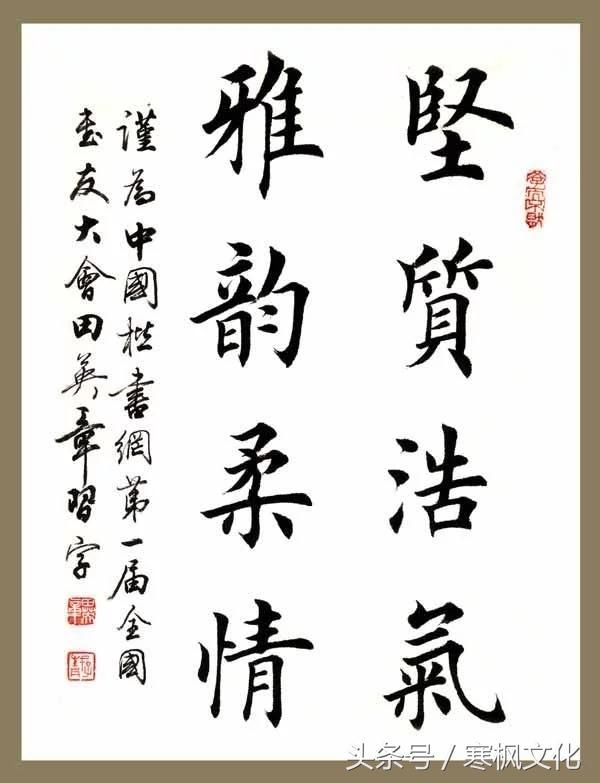 堅質浩氣
雅韵柔情
謹為中國楷書網第一届全國
書友大會田英章習字
头条号/寒枫文化